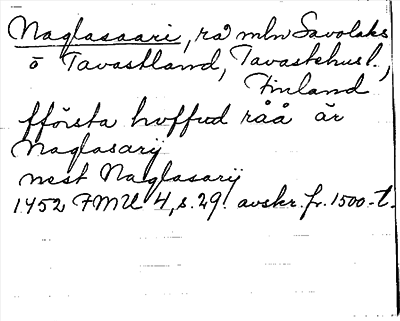 Naglasaari, rå mln Savolaks
o Tavastland, Tavastehusl.,
Finland
fförsta huffud råå är
Naglasarij
nest Naglasarij
1452 FMU 4, s. 29. avskr. fr. 1500-t.